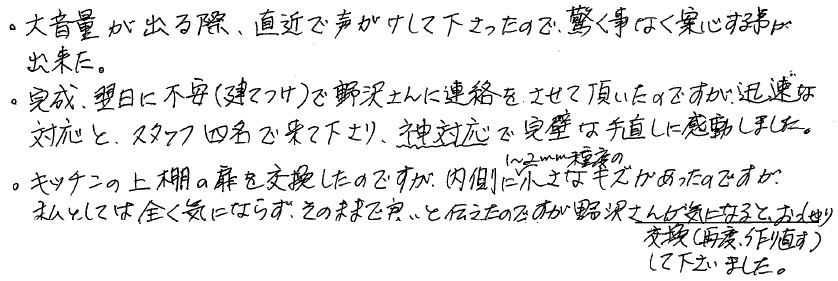 。大音量が出る際、直近で声がけして下さったので、驚く事なく安心する事が
出来た。
。完成、翌日に不安(建てつけ)で野沢さんに連絡をさせて頂いたのですが、迅速な
対応と、スタッフ四名で来て下さり、神対応で完璧な手直しに感動しました。
。キッチンの上棚の扉を交換したのですが、内側に1~2mm程度の小さなキズがあったのですが、
私としては全く気にならず、そのままで良いと伝えたのですが野沢さんが気になると、おっしゃり
交換(再度、作り直す)
して下さいました。